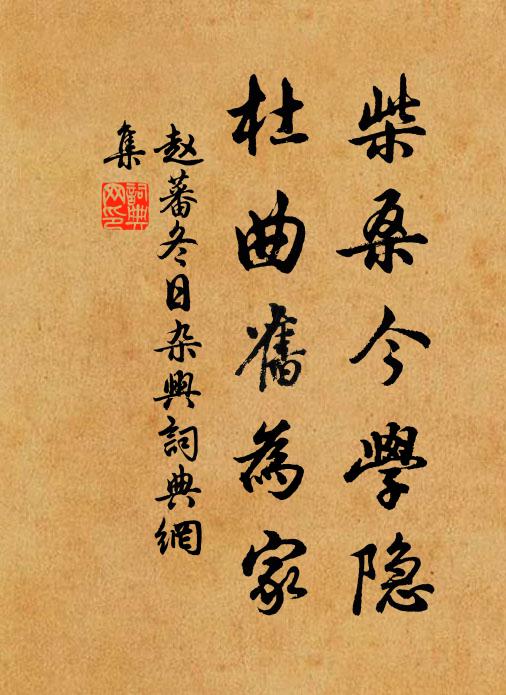 柴桑今學隐
杜曲舊為家
赵蕃冬日杂興詞典網
集
詞典
网印